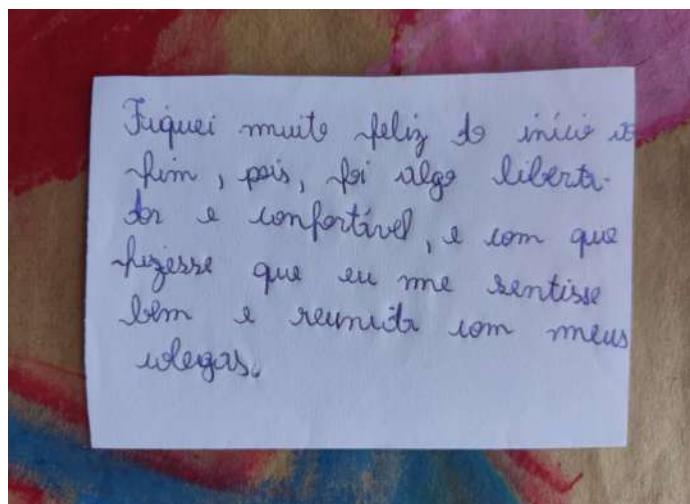 Fiquei muito feliz do início ao
fim, pois, foi algo liberta-
dor e confortável, e com que
fizesse que eu me sentisse
bem e reunida com meus
colegas.